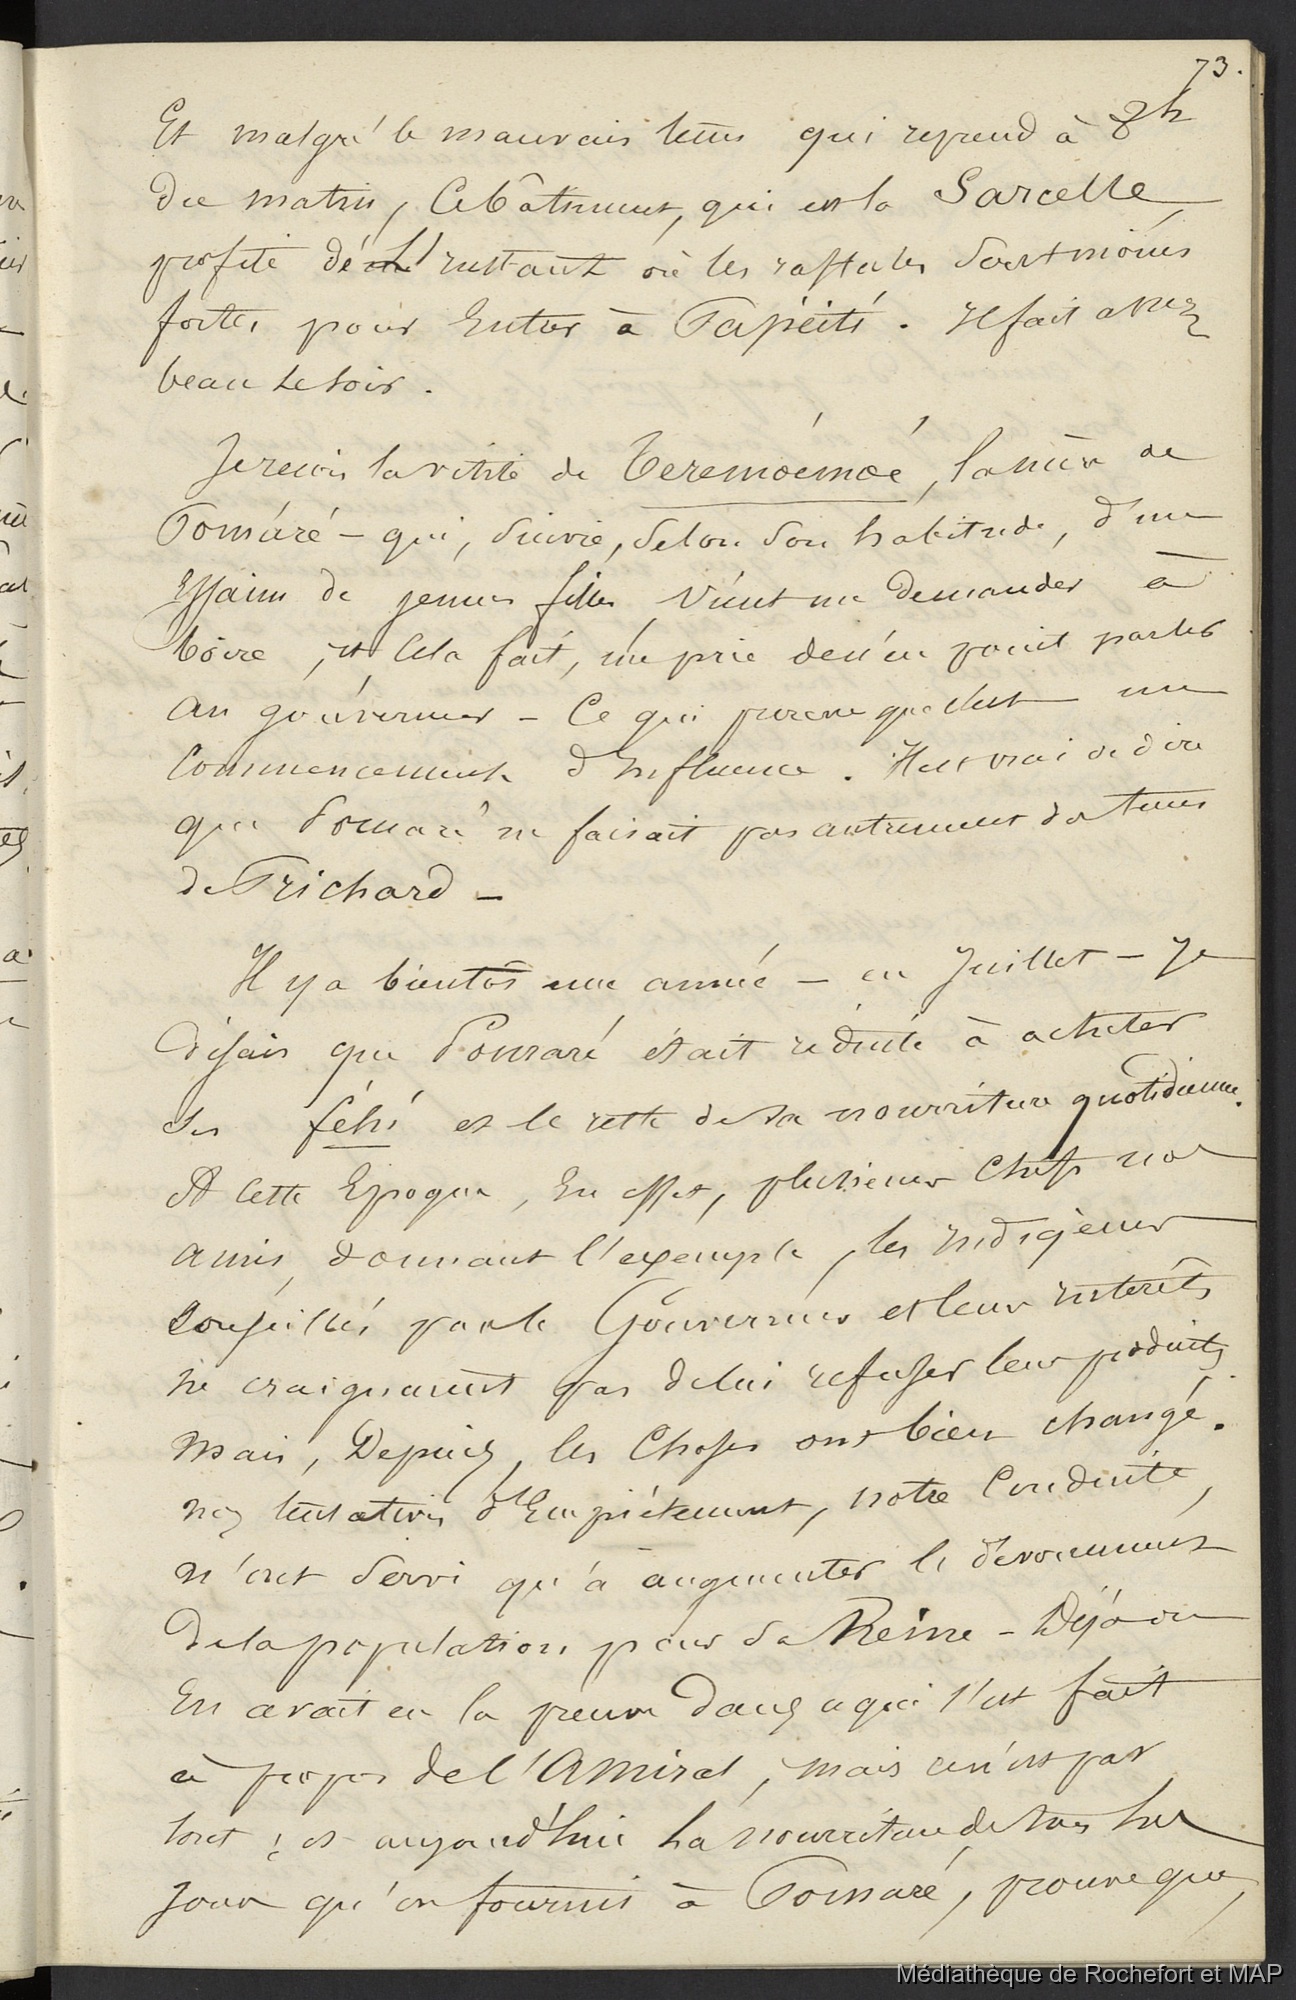 73.
Et malgré le mauvais tems qui reprend à 8h
du matin, ce bâtiment, qui est la Sarcelle,
profite de l'instant où les raffales sont moins
fortes pour entrer à Papéiti. Il fait assez
beau le soir.
Je reçois la visite de Teremoémoé, la mère de
Pomaré - qui, suivie, selon son habitude, d'un
essaim de jeunes filles, vient me demander à
boire, et, cela fait, me prie de n'en point parler
au gouverneur - Ce qui prouve que c'est un
commencement d'influence. Il est vrai de dire
que Pomaré ne faisait pas autrement du tems
de Prichard -
Il y a bientôt une année - en Juillet - Je
disais que Pomaré était réduite à acheter
ses féhi et le reste de sa nourriture quotidienne.
A cette Epoque, en effet, plusieurs chefs nos
amis, donnant l'exemple, les indigènes
conseillés par le Gouverneur et leurs intérêts
ne craignaient pas de lui refuser leurs produits.
Mais, Depuis, les choses ont bien changé.
nos tentatives d'Empiétement, notre Conduite,
n'ont servi qu'à augmenter le dévouement
de la population pour sa Reine - Déjà on
en avait eu la preuve dans ce qui s'est fait
à propos de l'Amiral, mais ce n'est pas
tout ; et aujourd'hui la nourriture de tous les
jours qu'on fournit à Pomaré, prouve que,
Médiathèque de Rochefort et MAP